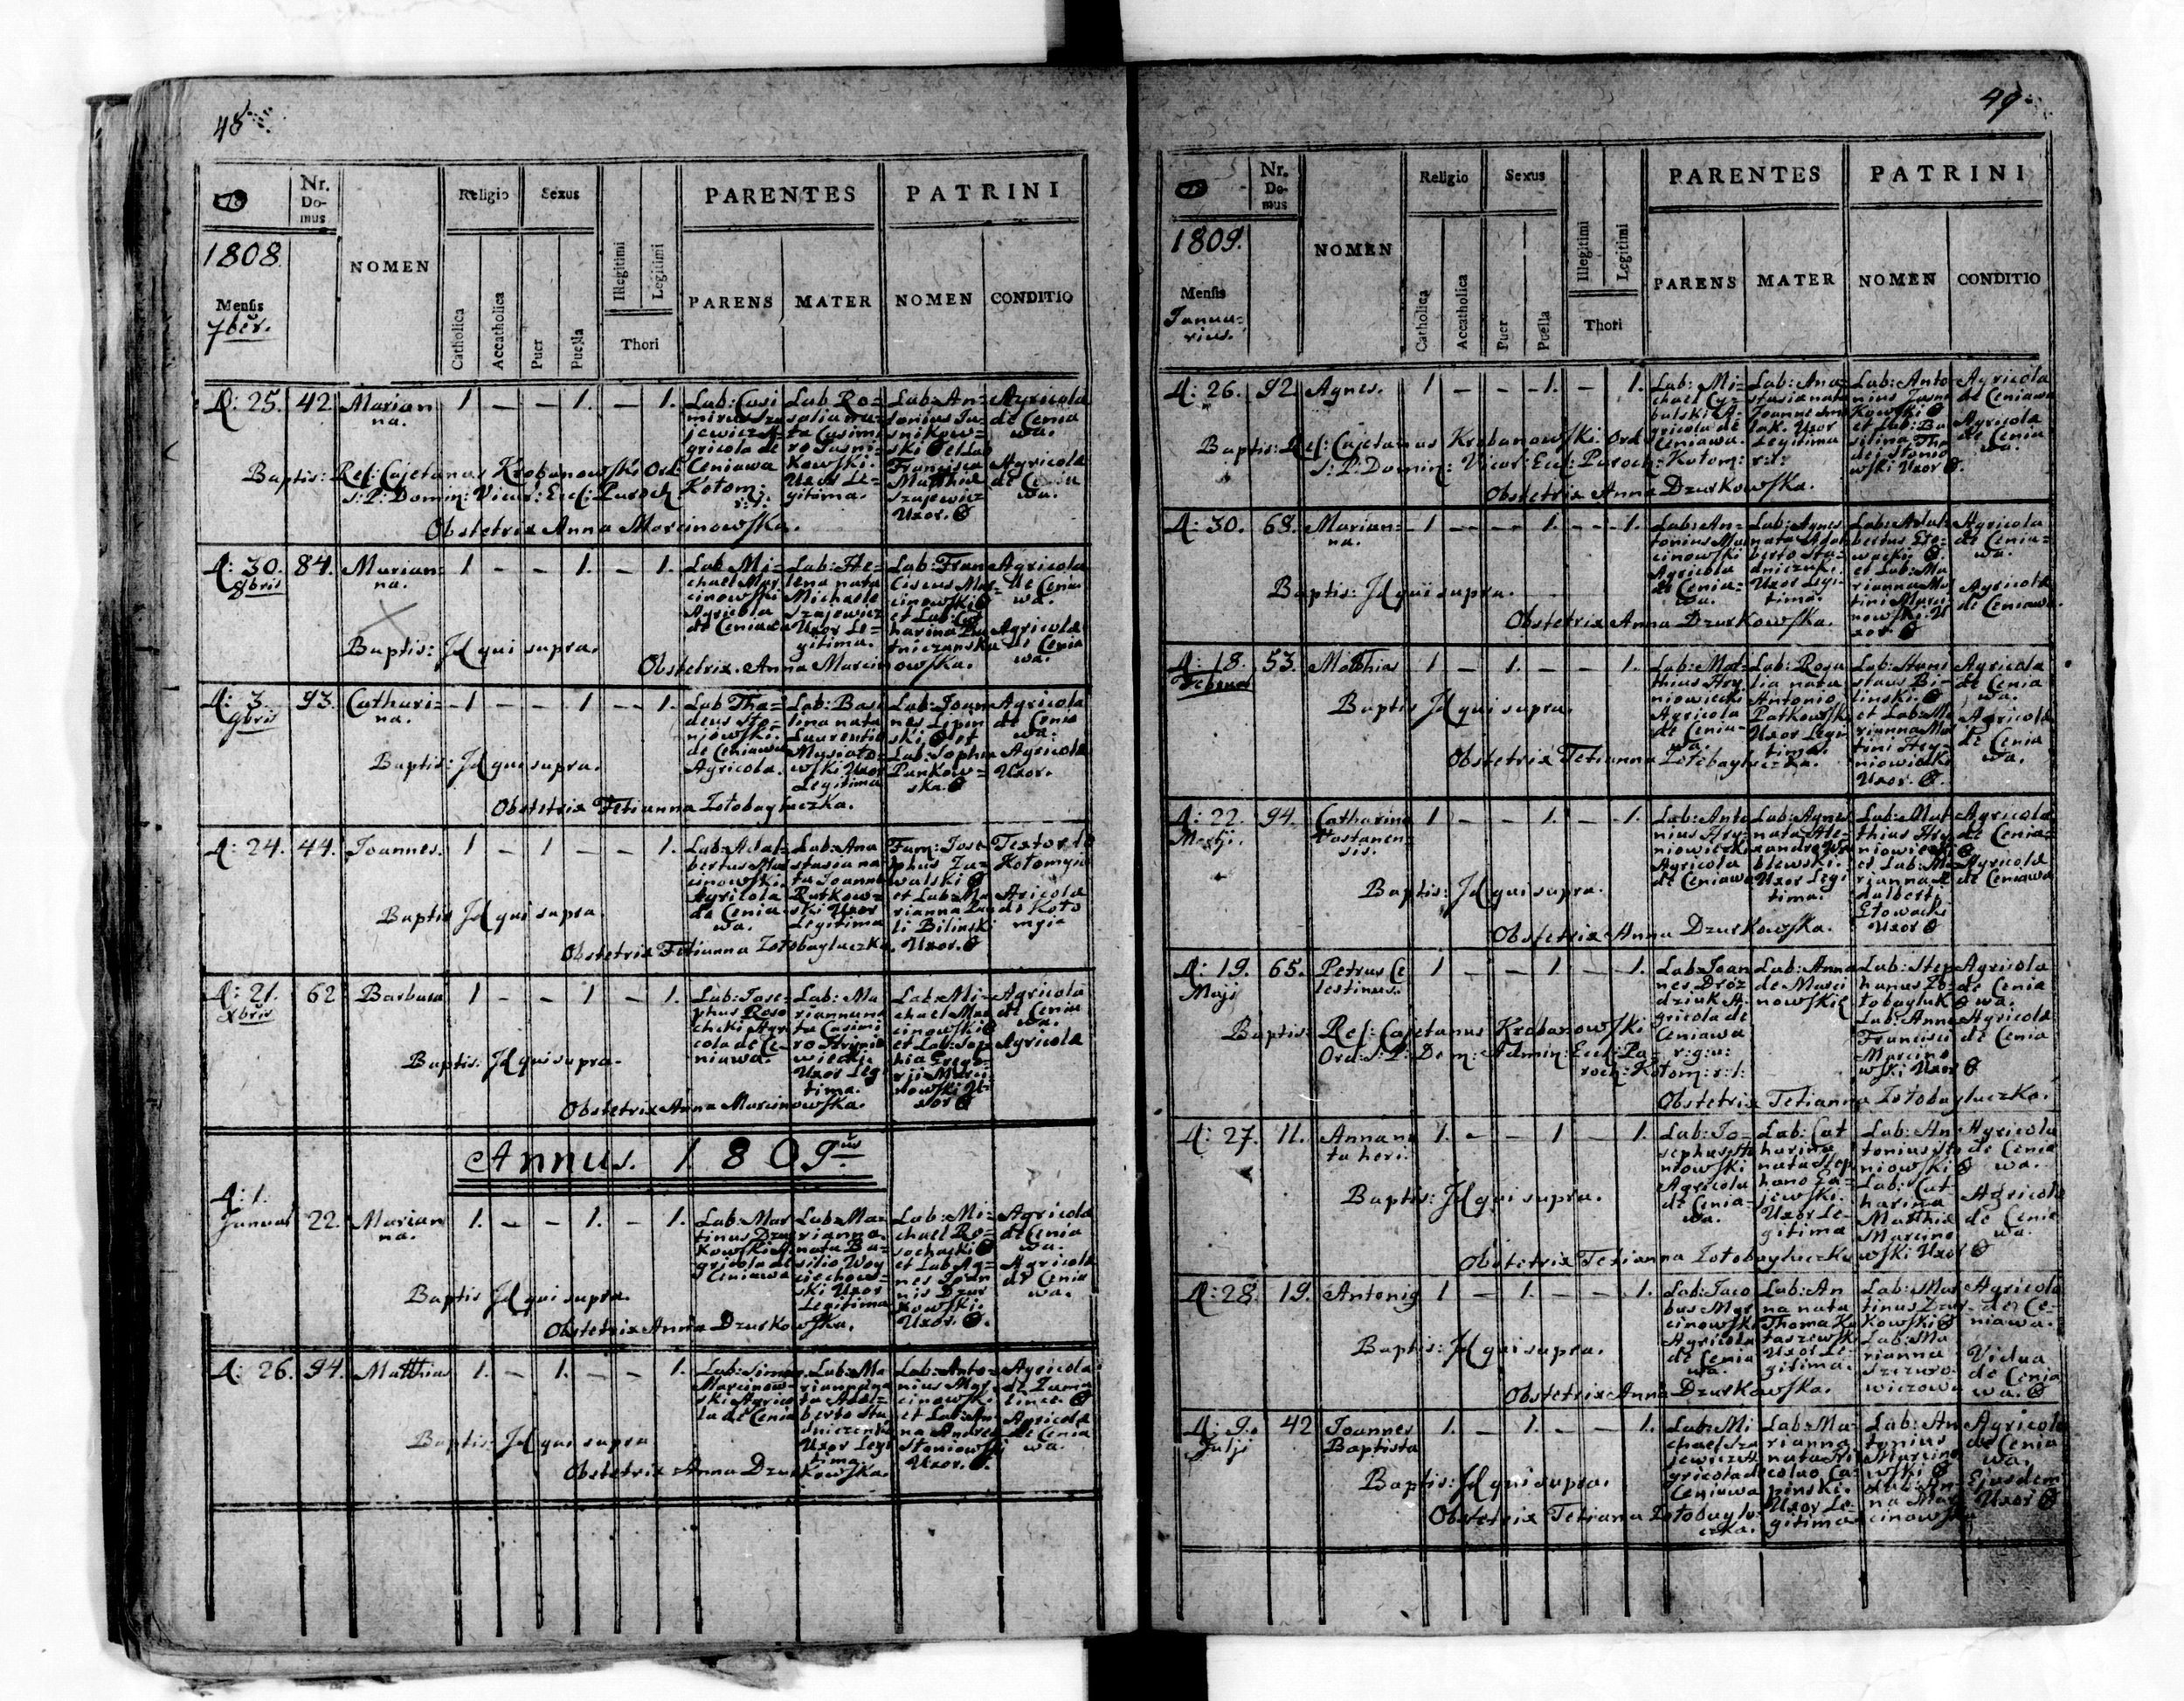 48
1808
Mensis
7bēr.
Nr. Domus
NOMEN
Religio
Catholica
Accatholica
Sexus
Puer
Puella
Illegitimi
Legitimi
Thori
PARENTES
PARENS
MATER
PATRINI
NOMEN
CONDITIO
D: 25. 42. Marian
na.
1 – – 1. – 1.
gricola de
Ceniawa
Kołom:
r: l:
Uxor Le=
gitima.
Uxor.
Agricola
de Cenia
wa.
Agricola
de Cenia
wa.
Baptis: Rel: Cajetanus Krobanowski Ord:
S: P: Domin: Vicar: Eccl: Paroch
Obstetrix Anna Marcinowska.
D: 30. 84. Marian=
8bris
na.
1 – – 1. – 1.
Lab: Mi=
chael Mar
cinowski
Agricola
de Ceniawa
Lab: He=
lena nata
Michaele
Szajewicz
Uxor Le=
gitima.
Lab: Fran
ciscus Mar=
cinowski
et Lab: Cat
harina
Agricola
de Cenia
wa.
Agricola
de Cenia
wa.
Baptis: Id qui supra.
Obstetrix. Anna Marcinowska.
D: 3. 93. Cathari=
9bris
na.
1 – – 1 – – 1.
Lab Tha=
deus Sto=
niowski.
de Ceniawa
Agricola.
Lab: Basi
lina nata
Laurentio
wski Uxor
Legitima
Lab: Joan
nes Lipin
ski et
Lab: Sophia
Pankow=
ska.
Agricola
de Cenia
wa.
Agricola
Uxor.
Baptis: Id qui supra.
Obstetrix Tetianna Zołobayluczka.
D: 24. 44. Joannes.
1 – 1 – – 1.
Lab: Adal=
bertus Mar
cinowski.
Agricola
de Cenia=
wa.
Lab: Ana
stasia na
ta Joanne
Rutkow=
ski Uxor
Legitima
Fam: Jose
phus Za=
walski
et Lab: Ma
rianna Pau
li Bilinski
Uxor.
Textor de
Kołomyia
Agricola
de Koło
myia
Baptis Id qui supra.
Obstetrix Tetianna Zołobayluczka.
D: 21. 62 Barbara
Xbris
1 – – 1 – 1.
Lab: Jose=
phus Roso
chcki Agri
cola de Ce=
niawa.
Lab: Ma
rianna na
ta Casimi
ro Hrynio
wiecki.
Uxor Legi
tima.
Lab: Mi=
chael Mar
cinowski
et Lab: Sop
hia Grego=
rii Marci
nowski U=
xor
Agricola
de Cenia
wa.
Agricola
Baptis. Id qui supra.
Obstetrix Anna Marcinowska.
Annus. 1809us
D: 1. 22. Marian
Januar
na.
1. – – 1. – 1.
Lab: Mar
tinus Dzur
kowski A
gricola de
Ceniawa
Lab: Ma=
rianna.
nata Ba=
silio Woy
ciechow=
ski Uxor
Legitima
Lab: Mi=
chael Ro=
sochacki
et Lab Ag=
nes Joan
nis Dzur
kowski.
Uxor.
Agricola
de Cenia
wa.
Agricola
de Cenia
wa.
Baptis Id qui supra.
Obstetrix Anna Dzurkowska.
D: 26. 94. Matthias
1. – 1. – – 1.
Lab: Simon
Marcinow=
ski Agrico
la de Cenia
Lab: Ma
rianna na
ta Adal=
berto Sta
Uxor Legi
tima.
Lab: Anto=
nius Mar
cinowski
et Lab: An
na Andreae
Stoniowski
Uxor.
Agricola
de
Agricola
de Cenia
wa.
Baptis: Id qui supra
Obstetrix Anna Dzurkowska.
49
1809.
Mensis
Janua=
rius.
Nr. Domus
NOMEN
Religio
Catholica
Accatholica
Sexus
Puer
Puella
Illegitimi
Legitimi
Thori
PARENTES
PARENS
MATER
PATRINI
NOMEN
CONDITIO
D: 26. 92. Agnes.
1 – – 1. – 1.
Lab: Mi=
chael Cy=
bulski A=
gricola de
Ceniawa.
Lab: Ana=
stasia nata
Joanne
Uxor
Legitima
Lab: Anto
nius Jasni
kowski
et Lab: Ba
silina Tha
dei Stonio
wski Uxor
Agricola
de Ceniawa
Agricola
de Cenia
wa.
Baptis: Rel: Cajetanus Krobanowski Ord
S: P: Domin: Vicar: Eccl: Paroch: Kołom: r: l:
Obstetrix Anna Dzurkowska.
D: 30. 68. Marian=
na.
1 – – 1. – – 1.
Lab: An=
tonius Mar
cinowski
Agricola
de Cenia=
wa.
Lab: Agnes
nata Adal
berto Sta=
dniczuki.
Uxor Legi
tima.
Lab: Adal
bertus Gło=
wacki
et Lab: Ma
rianna Mar
tini Marci
nowski U
xor
Agricola
de Cenia=
wa.
Agricola
de Ceniawa.
Baptis: Id qui supra.
Obstetrix Anna Dzurkowska.
D: 18. 53. Mathias
Februar
1 – 1. – – 1.
Lab: Mat=
thius Hry
niowiecki
Agricola
de Cenia=
wa.
Lab: Rosa
lia nata
Antonio
Patkowski
Uxor Legi
tima.
Lab: Stani
slaus Bi=
linski.
et Lab: Ma
rianna Ma
thei Hry=
niowiecki
Uxor.
Agricola
de Cenia
wa.
Agricola
de Cenia
wa.
Baptis Id qui supra.
Obstetrix Tetianna Zołobayluczka.
D: 22. 94. Catharina
Martij.
1 – – 1. – 1.
Lab: Anto
nius Hry=
niowiecki
Agricola
de Ceniawa
Lab: Agnes
nata Ale=
xandro
blewski.
Uxor Legi
tima.
Lab: Mat
thius Hry
niowiecki
et Lab: Ma
rianna A
dalberti
Głowacki
Uxor
Agricola
de Cenia=
Agricola
de Ceniawa
Baptis: Id qui supra.
Obstetrix Anna Dzurkowska.
D: 19. 65. Petrus Ce
Maji
lestinus.
1 – – 1 – 1.
Lab: Joan
nes Droz
dziuk A=
gricola de
Ceniawa
Lab: Anna
de Marci
nowskie
Lab: Step
hanus Zo=
łobayluk
Lab: Anna
Francisci
Marcino
wski Uxor
Agricola
de Cenia
wa.
Agricola
de Cenia
Baptis: Rel: Cajetanus Krobanowski
Ord: S: P: Dom: Admin: Eccl: Pa=
roch: Kołom: r: l:
Obstetrix Tetianna Zołobayluczka.
D: 27. 11. Anna na
ta heri.
1. – – 1 – 1.
Lab: Jo=
sephus Sto
niowski
Agricola
de Cenia=
wa.
Lab: Cat
harina
nata Step
hano Za=
jewski.
Uxor Le=
gitima
Lab: An
tonius Sto
niowski
Lab: Cat=
harina
Matthiae
Marcino
wski Uxor
Agricola
de Cenia
wa.
Agricola
de Cenia
wa.
Baptis: Id qui supra.
Obstetrix Tetianna Zołobayluczka
D: 28. 19. Antonius
1 – 1. – – 1.
Lab: Jaco
bus Mar
cinowski
Agricola
de Cenia
wa.
Lab: An
na nata
Thoma
Uxor Le=
gitima.
Lab: Mar
tinus Dzur
kowski
Lab: Ma
rianna
Szczuro=
wiczowa
Agricola
de Ce=
niawa.
Vidua
de Cenia
wa.
Baptis: Id qui supra.
Obstetrix Anna Dzurkowska.
D: 9. 42 Joannes
Julij
Baptista
1. – 1. – – 1.
Lab: Mi
chael Sza
jewicz A
gricola de
Ceniawa
Lab: Ma=
rianna
nata Ni
colao Ca=
pinski.
Uxor Le=
gitima
Lab: An
tonius
Marcino
wski
Lab: An=
na Mar
cinowska
Agricola
de Cenia
wa.
Ejusdem
Uxor
Baptis: Id qui supra.
Obstetrix Tetiana Zołobaylu=
czka.